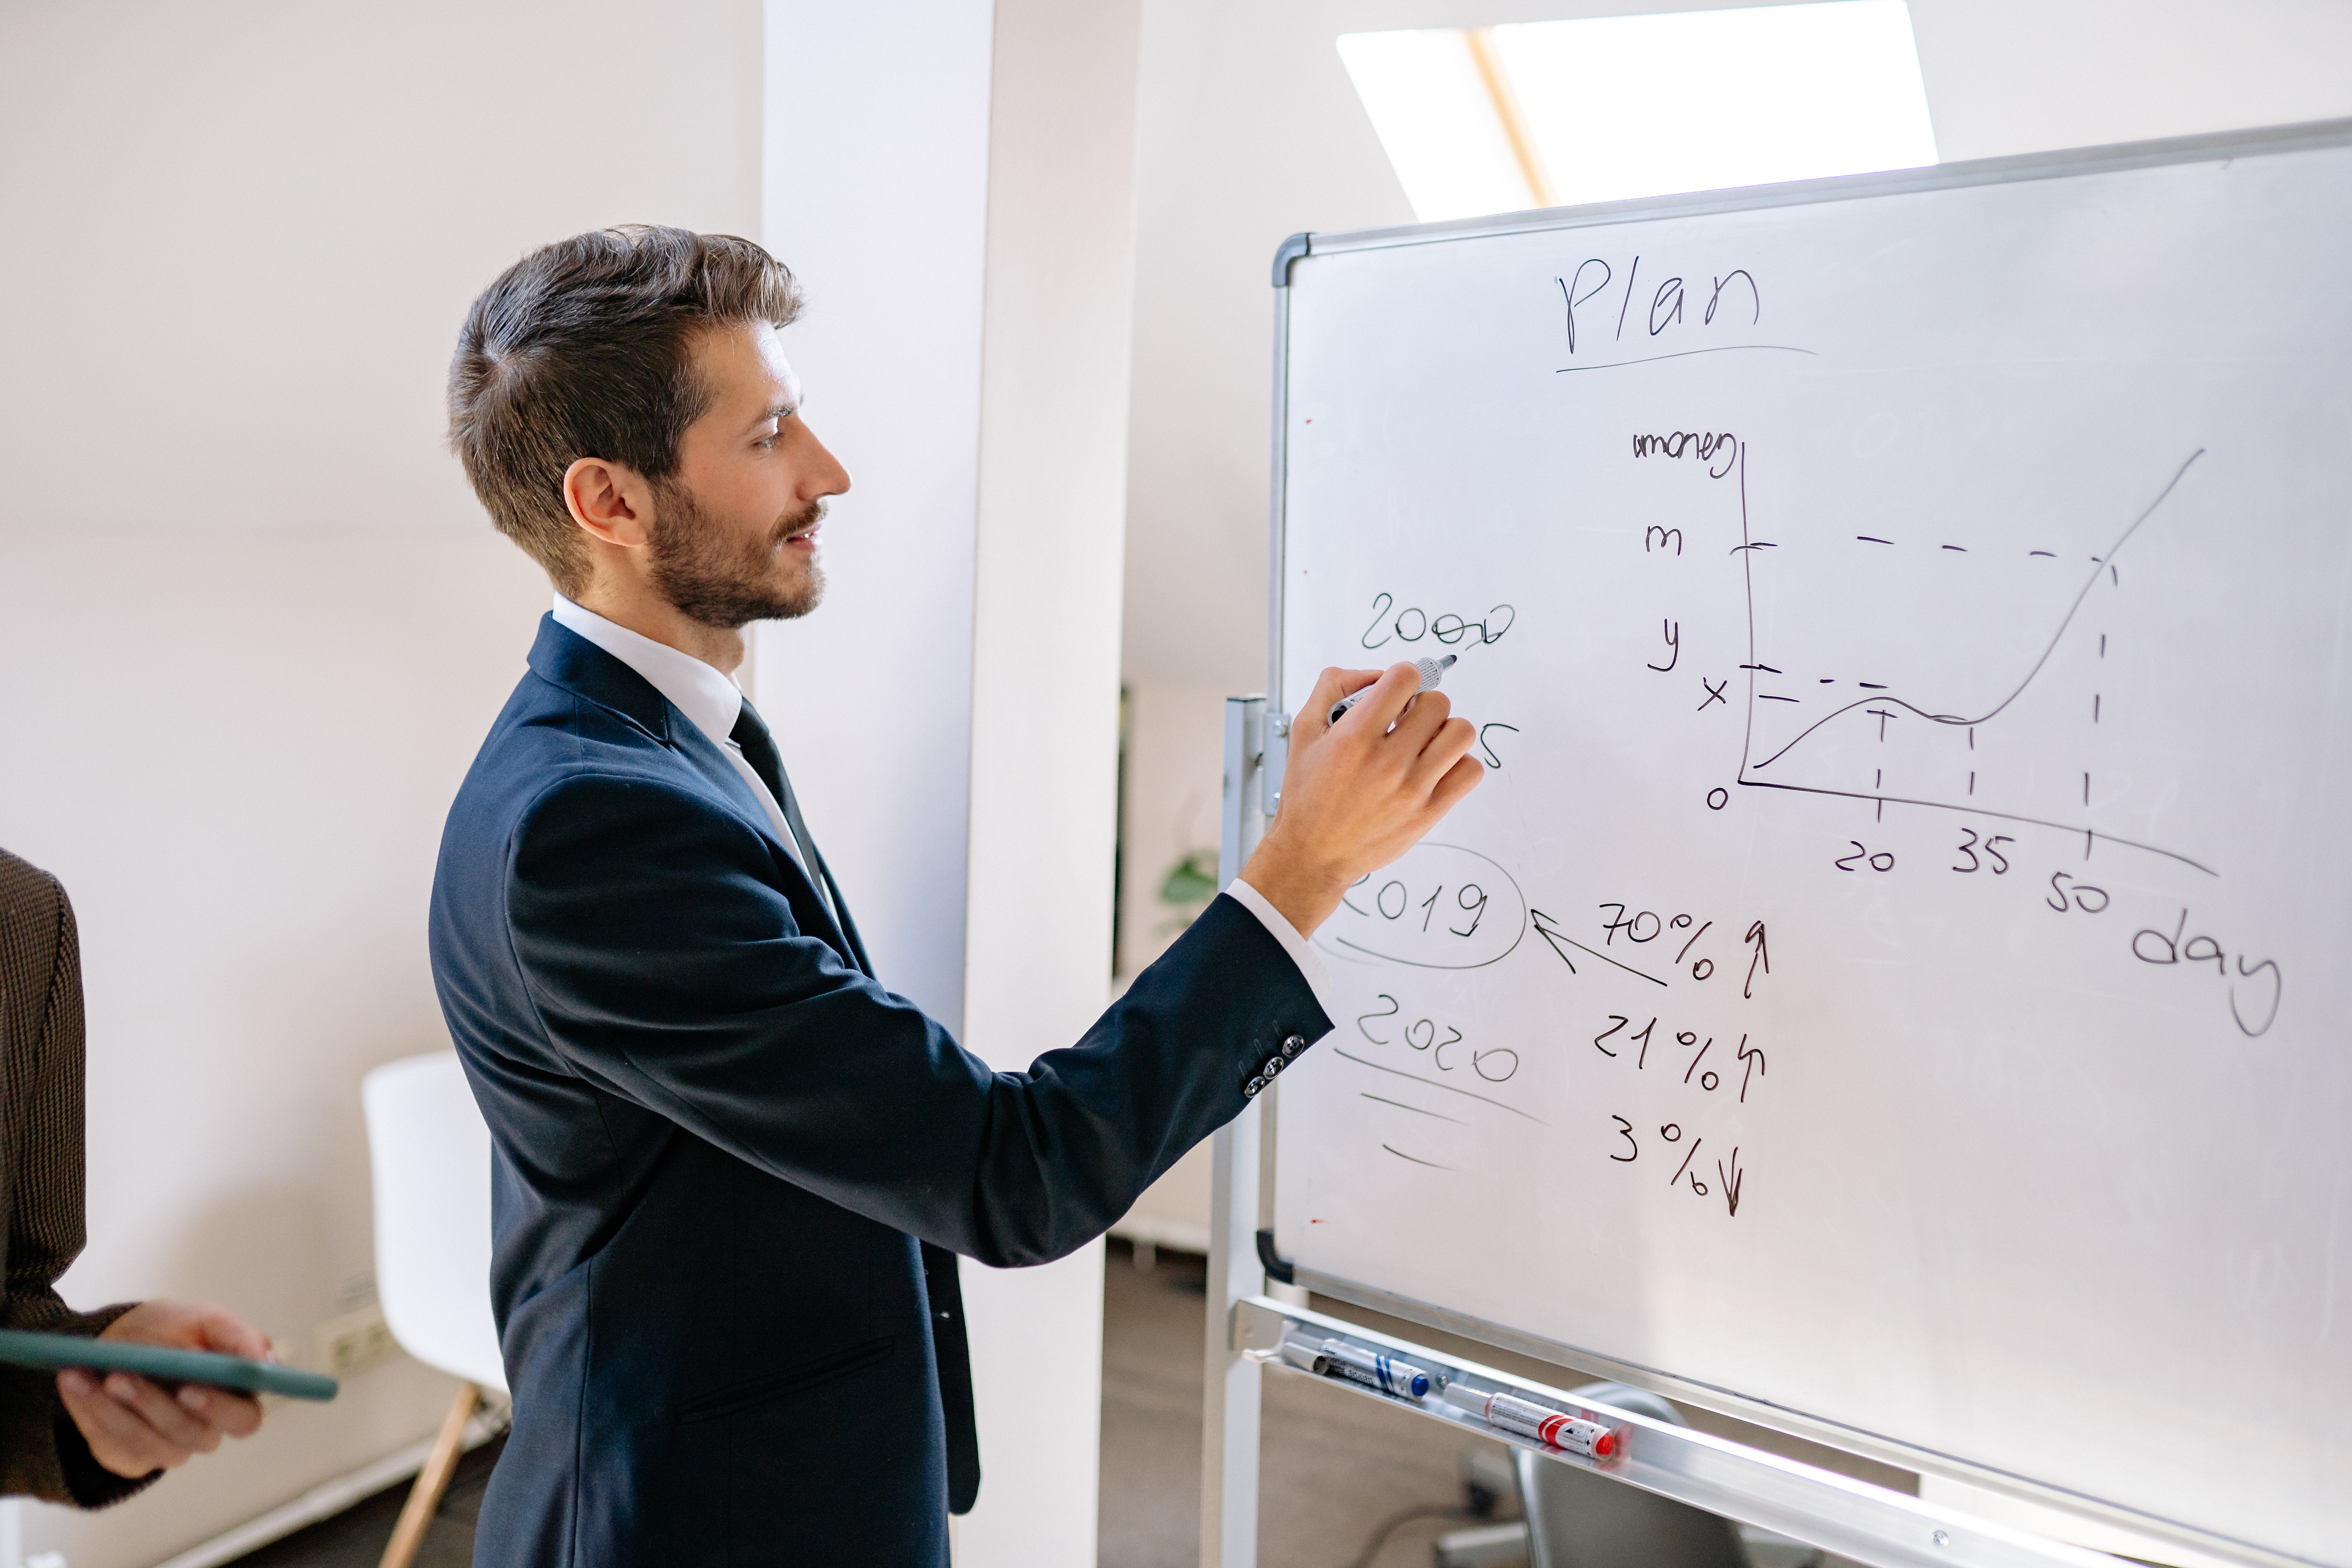 Plan
money
m
y
x
0
20 35 50
day
2000
5
2019
70% ↑
2020
21% ↑
3% ↓